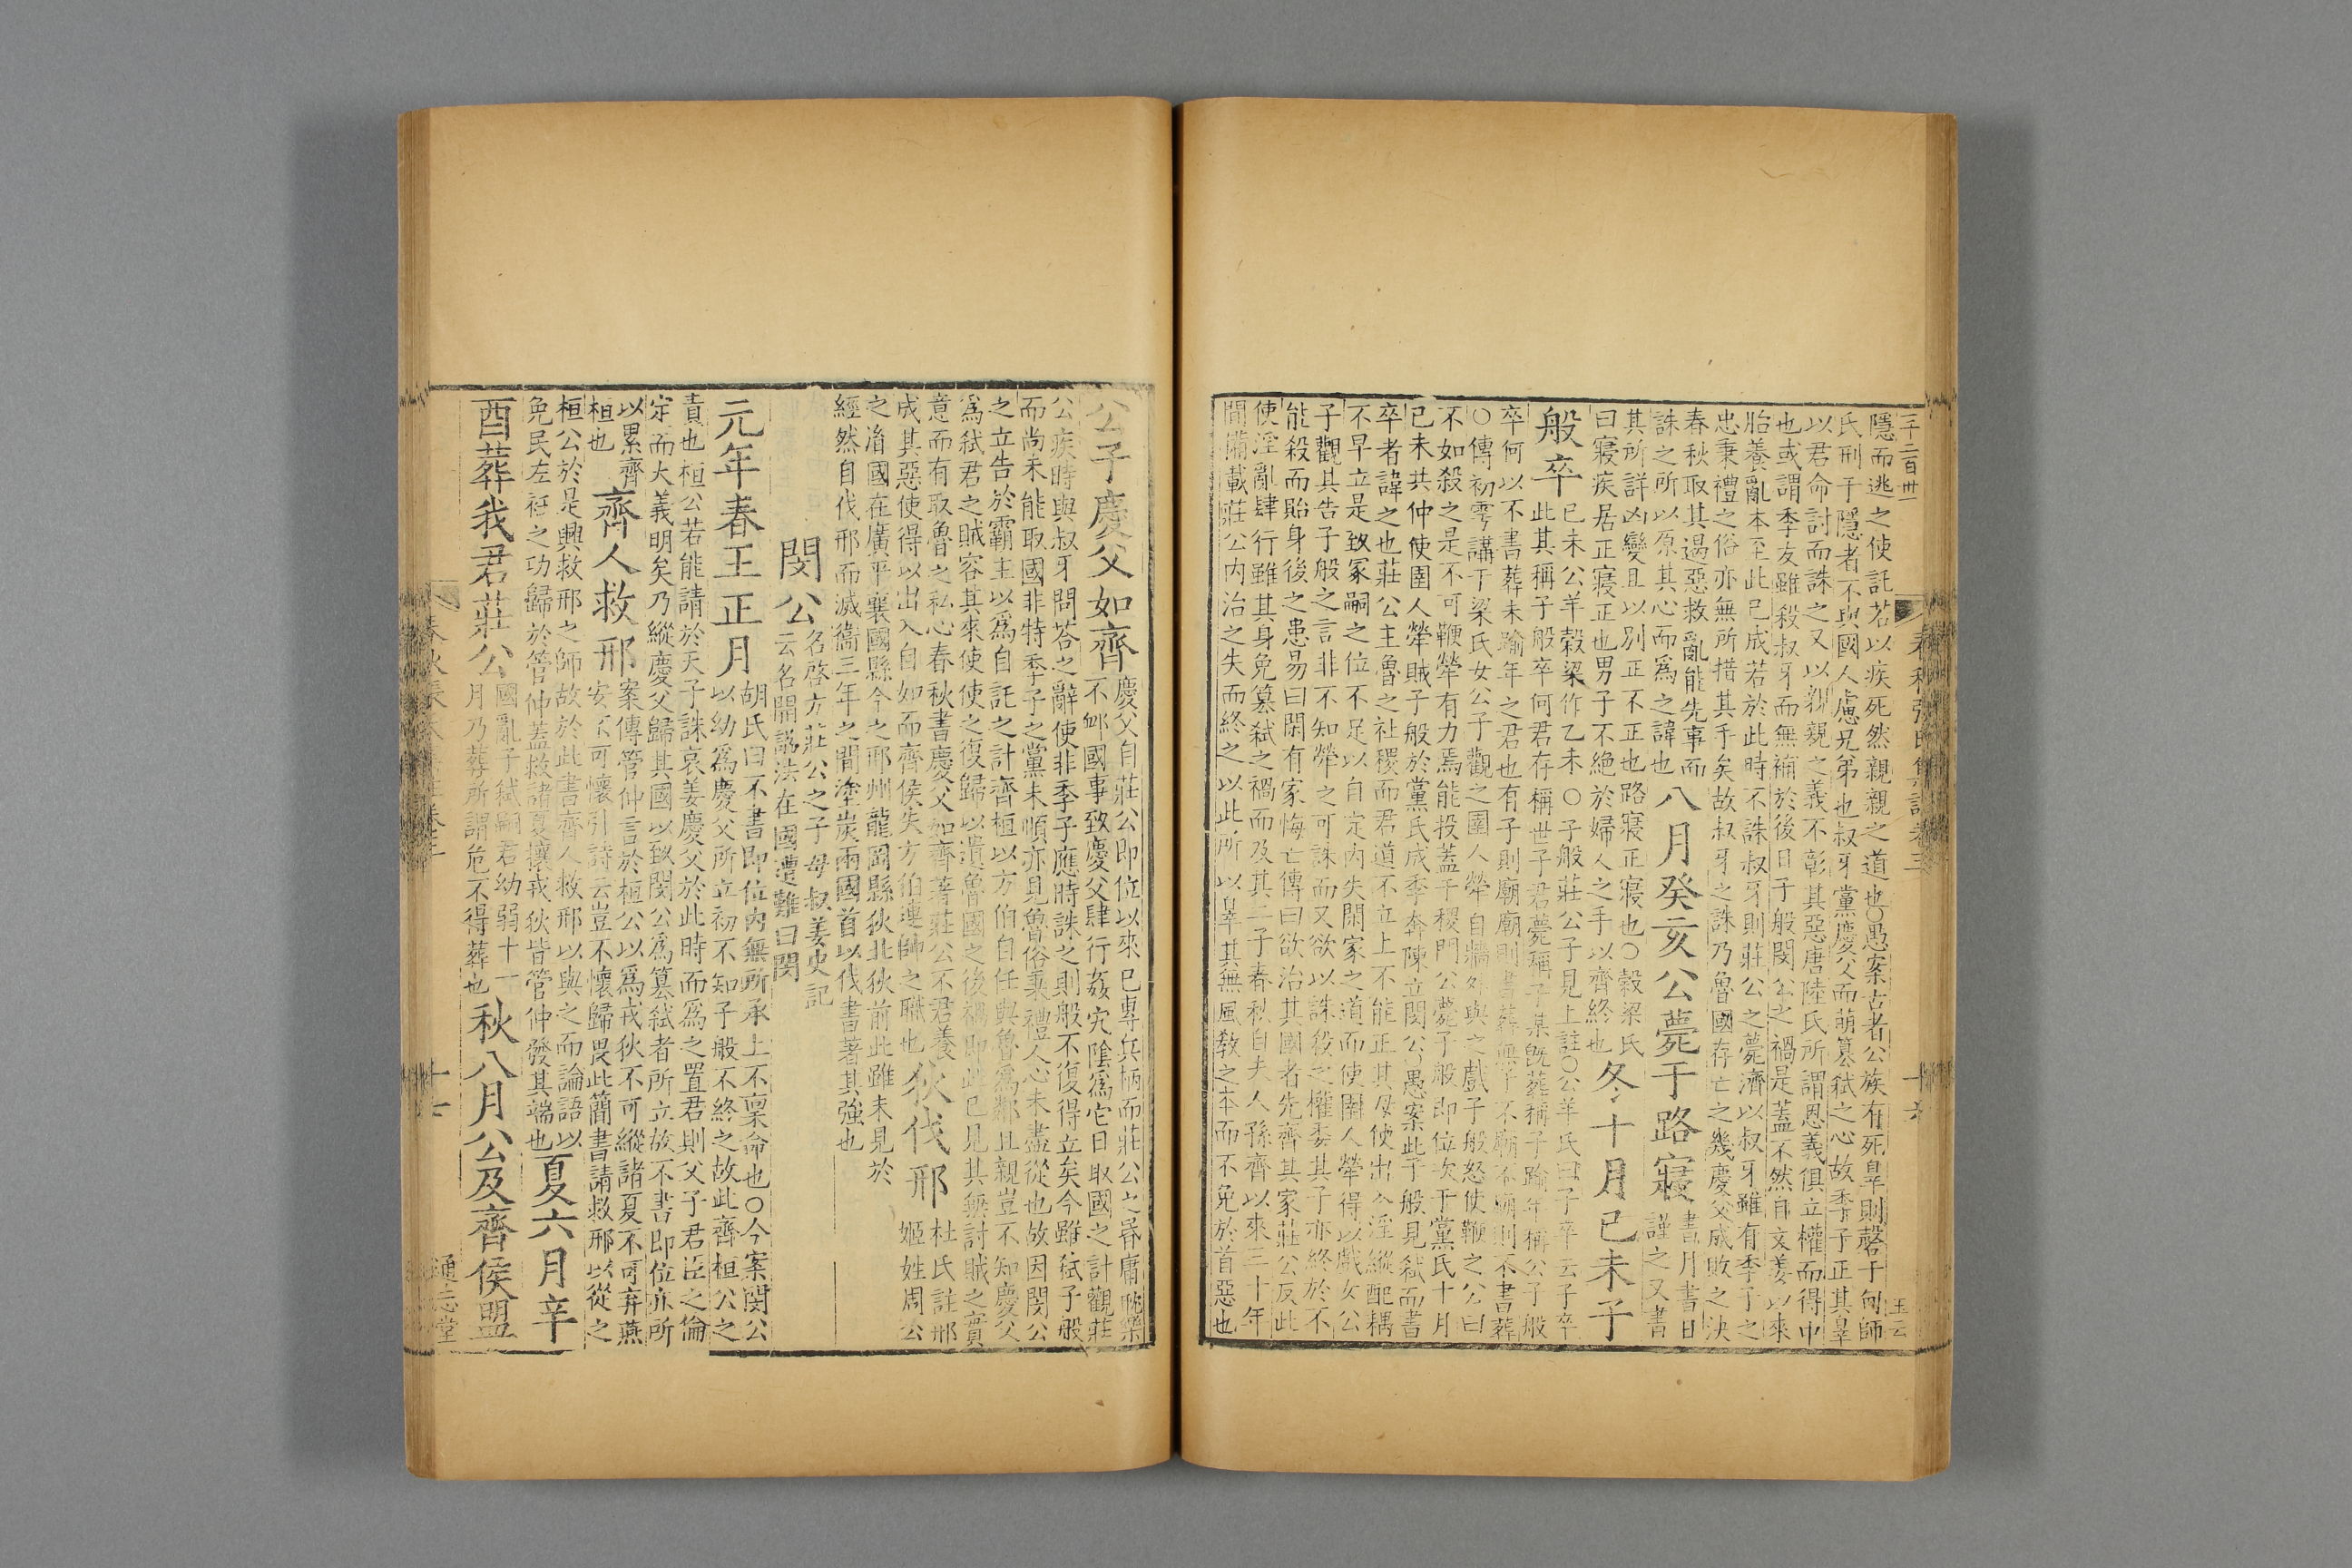 三千二百卅一
隱而逃之使託若以疾死然親親之道也○愚案古者公族有死辠則磬于甸師
氏刑于隱者不與國人慮兄弟也叔牙黨慶父而萌篡弑之心故季子正其辠
以君命討而誅之又以親親之義不彰其惡唐陸氏所謂恩義俱立權而得中
也或謂季友雖殺叔牙而無補於後日子般閔公之禍是蓋不然自文姜以來
胎養亂本至此已成若於此時不誅叔牙則莊公之薨濟以叔牙雖有季子之
忠秉禮之俗亦無所措其手矣故叔牙之誅乃魯國存亡之幾慶父成敗之決
春秋取其遏惡救亂能先事而
誅之所以原其心而爲之諱也
八月癸亥公薨于路寢
書月書日
謹之又書
其所詳凶變且以別正不正也路寢正寢也○穀梁氏
曰寢疾居正寢正也男子不絕於婦人之手以齊終也
冬十月己未子
般卒
己未公羊穀梁作乙未○子般莊公子見上註○公羊氏曰子卒云子卒
此其稱子般卒何君存稱世子君薨稱子某旣葬稱子踰年稱公子般
卒何以不書葬未踰年之君也有子則廟廟則書葬無子不廟不廟則不書葬
○傳初雩講于梁氏女公子觀之圉人犖自牆外與之戲子般怒使鞭之公曰
不如殺之是不可鞭犖有力焉能投蓋于稷門公薨子般即位次于黨氏十月
己未共仲使圉人犖賊子般於黨氏成季奔陳立閔公愚案此子般見弑而書
卒者諱之也莊公主魯之社稷而君道不立上不能正其母使出入淫縱配耦
不早立是致冢嗣之位不足以自定內失閑家之道而使圉人犖得以戲女公
子觀其告子般之言非不知犖之可誅而又欲以誅殺之權委其子亦終於不
能殺而貽身後之患易曰閑有家悔亡傳曰欲治其國者先齊其家莊公反此
使淫亂肆行雖其身免篡弑之禍而及其二子春秋自夫人孫齊以來三十年
閒備載莊公內治之失而終之以此所以辠其無風敎之本而不免於首惡也
春秋張氏集註卷三
十六
玉云
公子慶父如齊
慶父自莊公即位以來已專兵柄而莊公之昏庸耽樂
不卹國事致慶父肆行姦宄陰爲它日取國之計觀莊
公疾時與叔牙問荅之辭使非季子應時誅之則般不復得立矣今雖弑子般
而尚未能取國非特季子之黨未順亦見魯俗秉禮人心未盡從也故因閔公
之立告於霸主以爲自託之計齊桓以方伯自任與魯爲鄰且親豈不知慶父
爲弑君之賊容其來使使之復歸以遺魯國之後禍即此已見其無討賊之實
意而有取魯之私心春秋書慶父如齊著莊公不君養
成其惡使得以出入自如而齊侯失方伯連帥之職也
狄伐邢
杜氏註邢
姬姓周公
之㣧國在廣平襄國縣今之邢州龍岡縣狄北狄前此雖未見於
經然自伐邢而滅衞三年之閒塗炭兩國首以伐書著其强也
閔公
名啓方莊公之子母叔姜史記
云名開謚法在國遭難曰閔
元年春王正月
胡氏曰不書即位內無所承上不稟命也○今案閔公
以幼爲慶父所立初不知子般不終之故此齊桓公之
責也桓公若能請於天子誅哀姜慶父於此時而爲之置君則父子君臣之倫
定而大義明矣乃縱慶父歸其國以致閔公爲篡弑者所立故不書即位亦所
以累齊
桓也
齊人救邢
案傳管仲言於桓公以爲戎狄不可縱諸夏不可弃燕
安不可懷引詩云豈不懷歸畏此簡書請救邢以從之
桓公於是興救邢之師故於此書齊人救邢以與之而論語以
免民左衽之功歸於管仲蓋救諸夏攘戎狄皆管仲發其端也
夏六月辛
酉葬我君莊公
國亂子弑嗣君幼弱十一
月乃葬所謂危不得葬也
秋八月公及齊侯盟
春秋張氏集註卷三
十七
通志堂